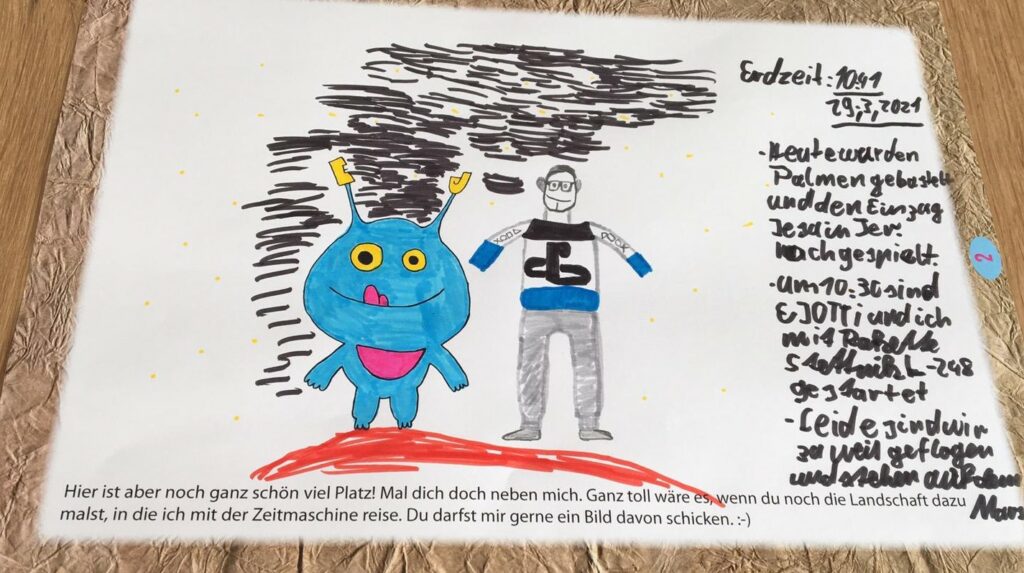 Erdzeit: 10:41
29,3,2021
- Heute warden
Palmen gebastelt
und den Einzag
Jesa in Jer.
nachgespielt.
- Um 10:30 sind
EJOTTi und ich
mit Rakette
L-248
gestartet
- Leide sind wir
za weit geflogen
und stehen auf dem
Mars
2
Hier ist aber noch ganz schön viel Platz! Mal dich doch neben mich. Ganz toll wäre es, wenn du noch die Landschaft dazu
malst, in die ich mit der Zeitmaschine reise. Du darfst mir gerne ein Bild davon schicken. :-)